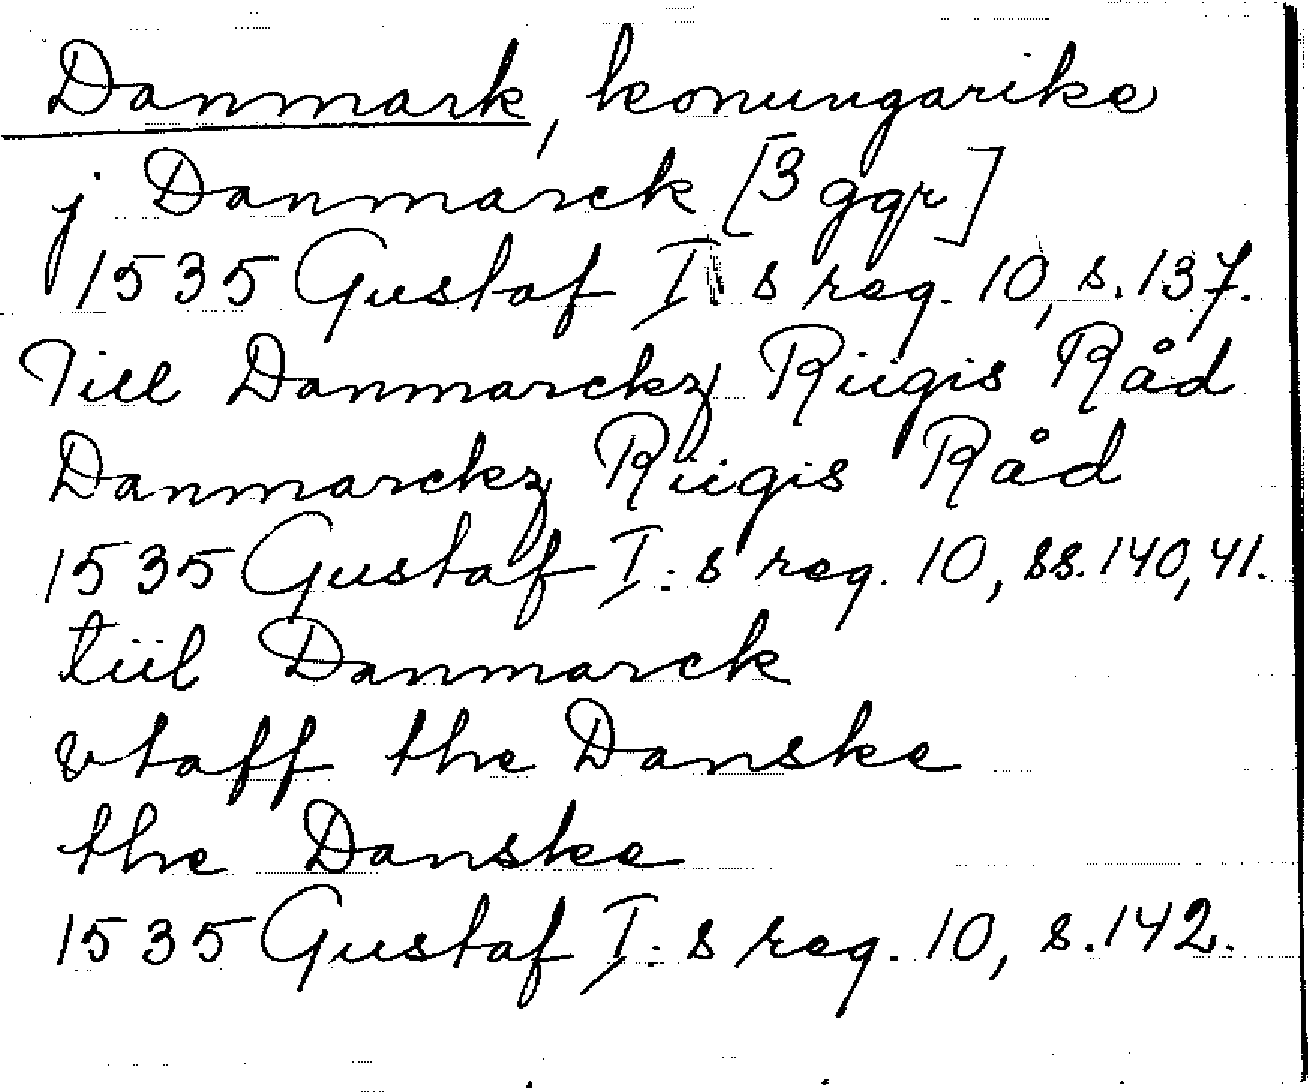 Danmark, konungarike
j Danmarck [3 ggr]
1535 Gustaf I s reg. 10, s. 137.
Till Danmarckz Riigis Råd
Danmarckz Riigis Råd
1535 Gustaf I:s reg. 10, ss. 140, 41.
tiil Danmarck
vtaff the Danske
the Danske
1535 Gustaf I:s reg. 10, s. 142.